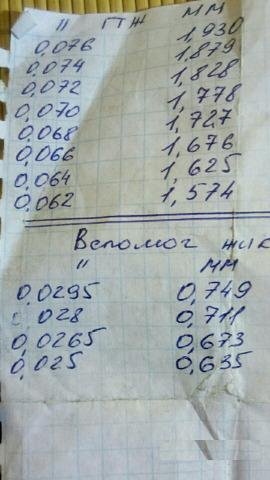 " ГТЖ ММ
0,076 1,930
0,074 1,879
0,072 1,828
0,070 1,778
0,068 1,727
0,066 1,676
0,064 1,625
0,062 1,574
Вспомог жик
" ММ
0,0295 0,749
0,028 0,711
0,0265 0,673
0,025 0,635